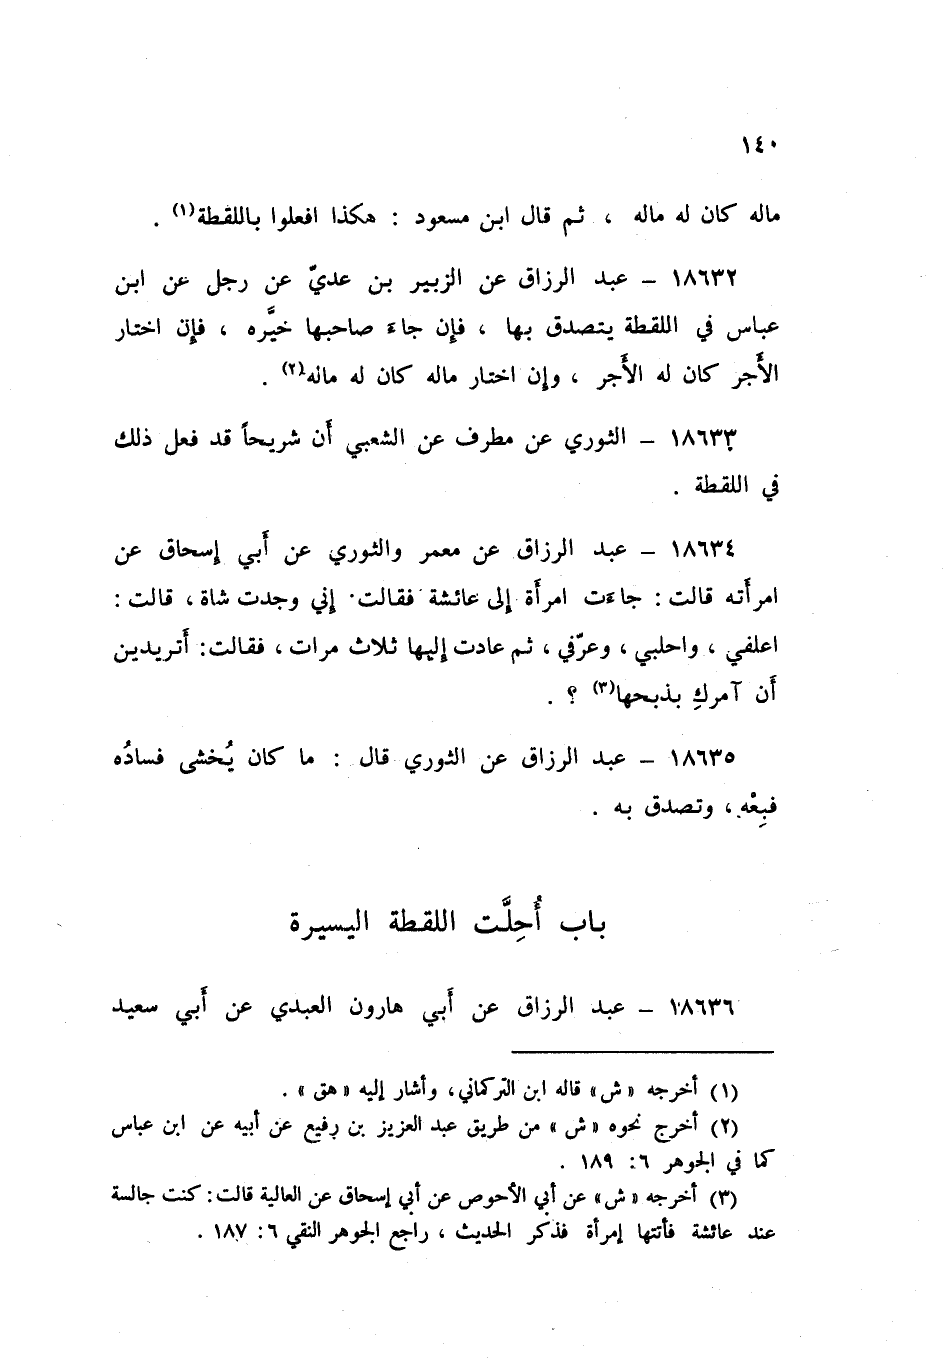 ١٤٠
ماله كان له ماله ، ثم قال ابن مسعود : هكذا افعلوا باللقطة(١) .
١٨٦٣٢ – عبد الرزاق عن الزبير بن عديّ عن رجل عن ابن
عباس في اللقطة يتصدق بها ، فإن جاءَ صاحبها خيَّره ، فإن اختار
الأَجر كان له الأَجر ، وإن اختار ماله كان له ماله(٢) .
١٨٦٣٣ – الثوري عن مطرف عن الشعبي أَن شريحاً قد فعل ذلك
في اللقطة .
١٨٦٣٤ – عبد الرزاق عن معمر والثوري عن أَبي إسحاق عن
امرأَته قالت : جاءَت امرأَة إلى عائشة فقالت· إني وجدت شاة ، قالت :
اعلفي ، واحلبي ، وعرّفي ، ثم عادت إليها ثلاث مرات ، فقالت : أَتريدين
أَن آمركِ بذبحها(٣) ؟ .
١٨٦٣٥ – عبد الرزاق عن الثوري قال : ما كان يُخشى فسادُه
فبِعْه ، وتصدق به .
باب أُحِلَّت اللقطة اليسيرة
١٨٦٣٦ – عبد الرزاق عن أَبي هارون العبدي عن أَبي سعيد
(١) أخرجه «ش» قاله ابن التركماني، وأشار إليه «هق» .
(٢) أخرج نحوه «ش» من طريق عبد العزيز بن رفيع عن أبيه عن ابن عباس
كما في الجوهر ٦: ١٨٩ .
(٣) أخرجه «ش» عن أبي الأحوص عن أبي إسحاق عن العالية قالت : كنت جالسة
عند عائشة فأتتها إمرأة فذكر الحديث ، راجع الجوهر النقي ٦: ١٨٧ .